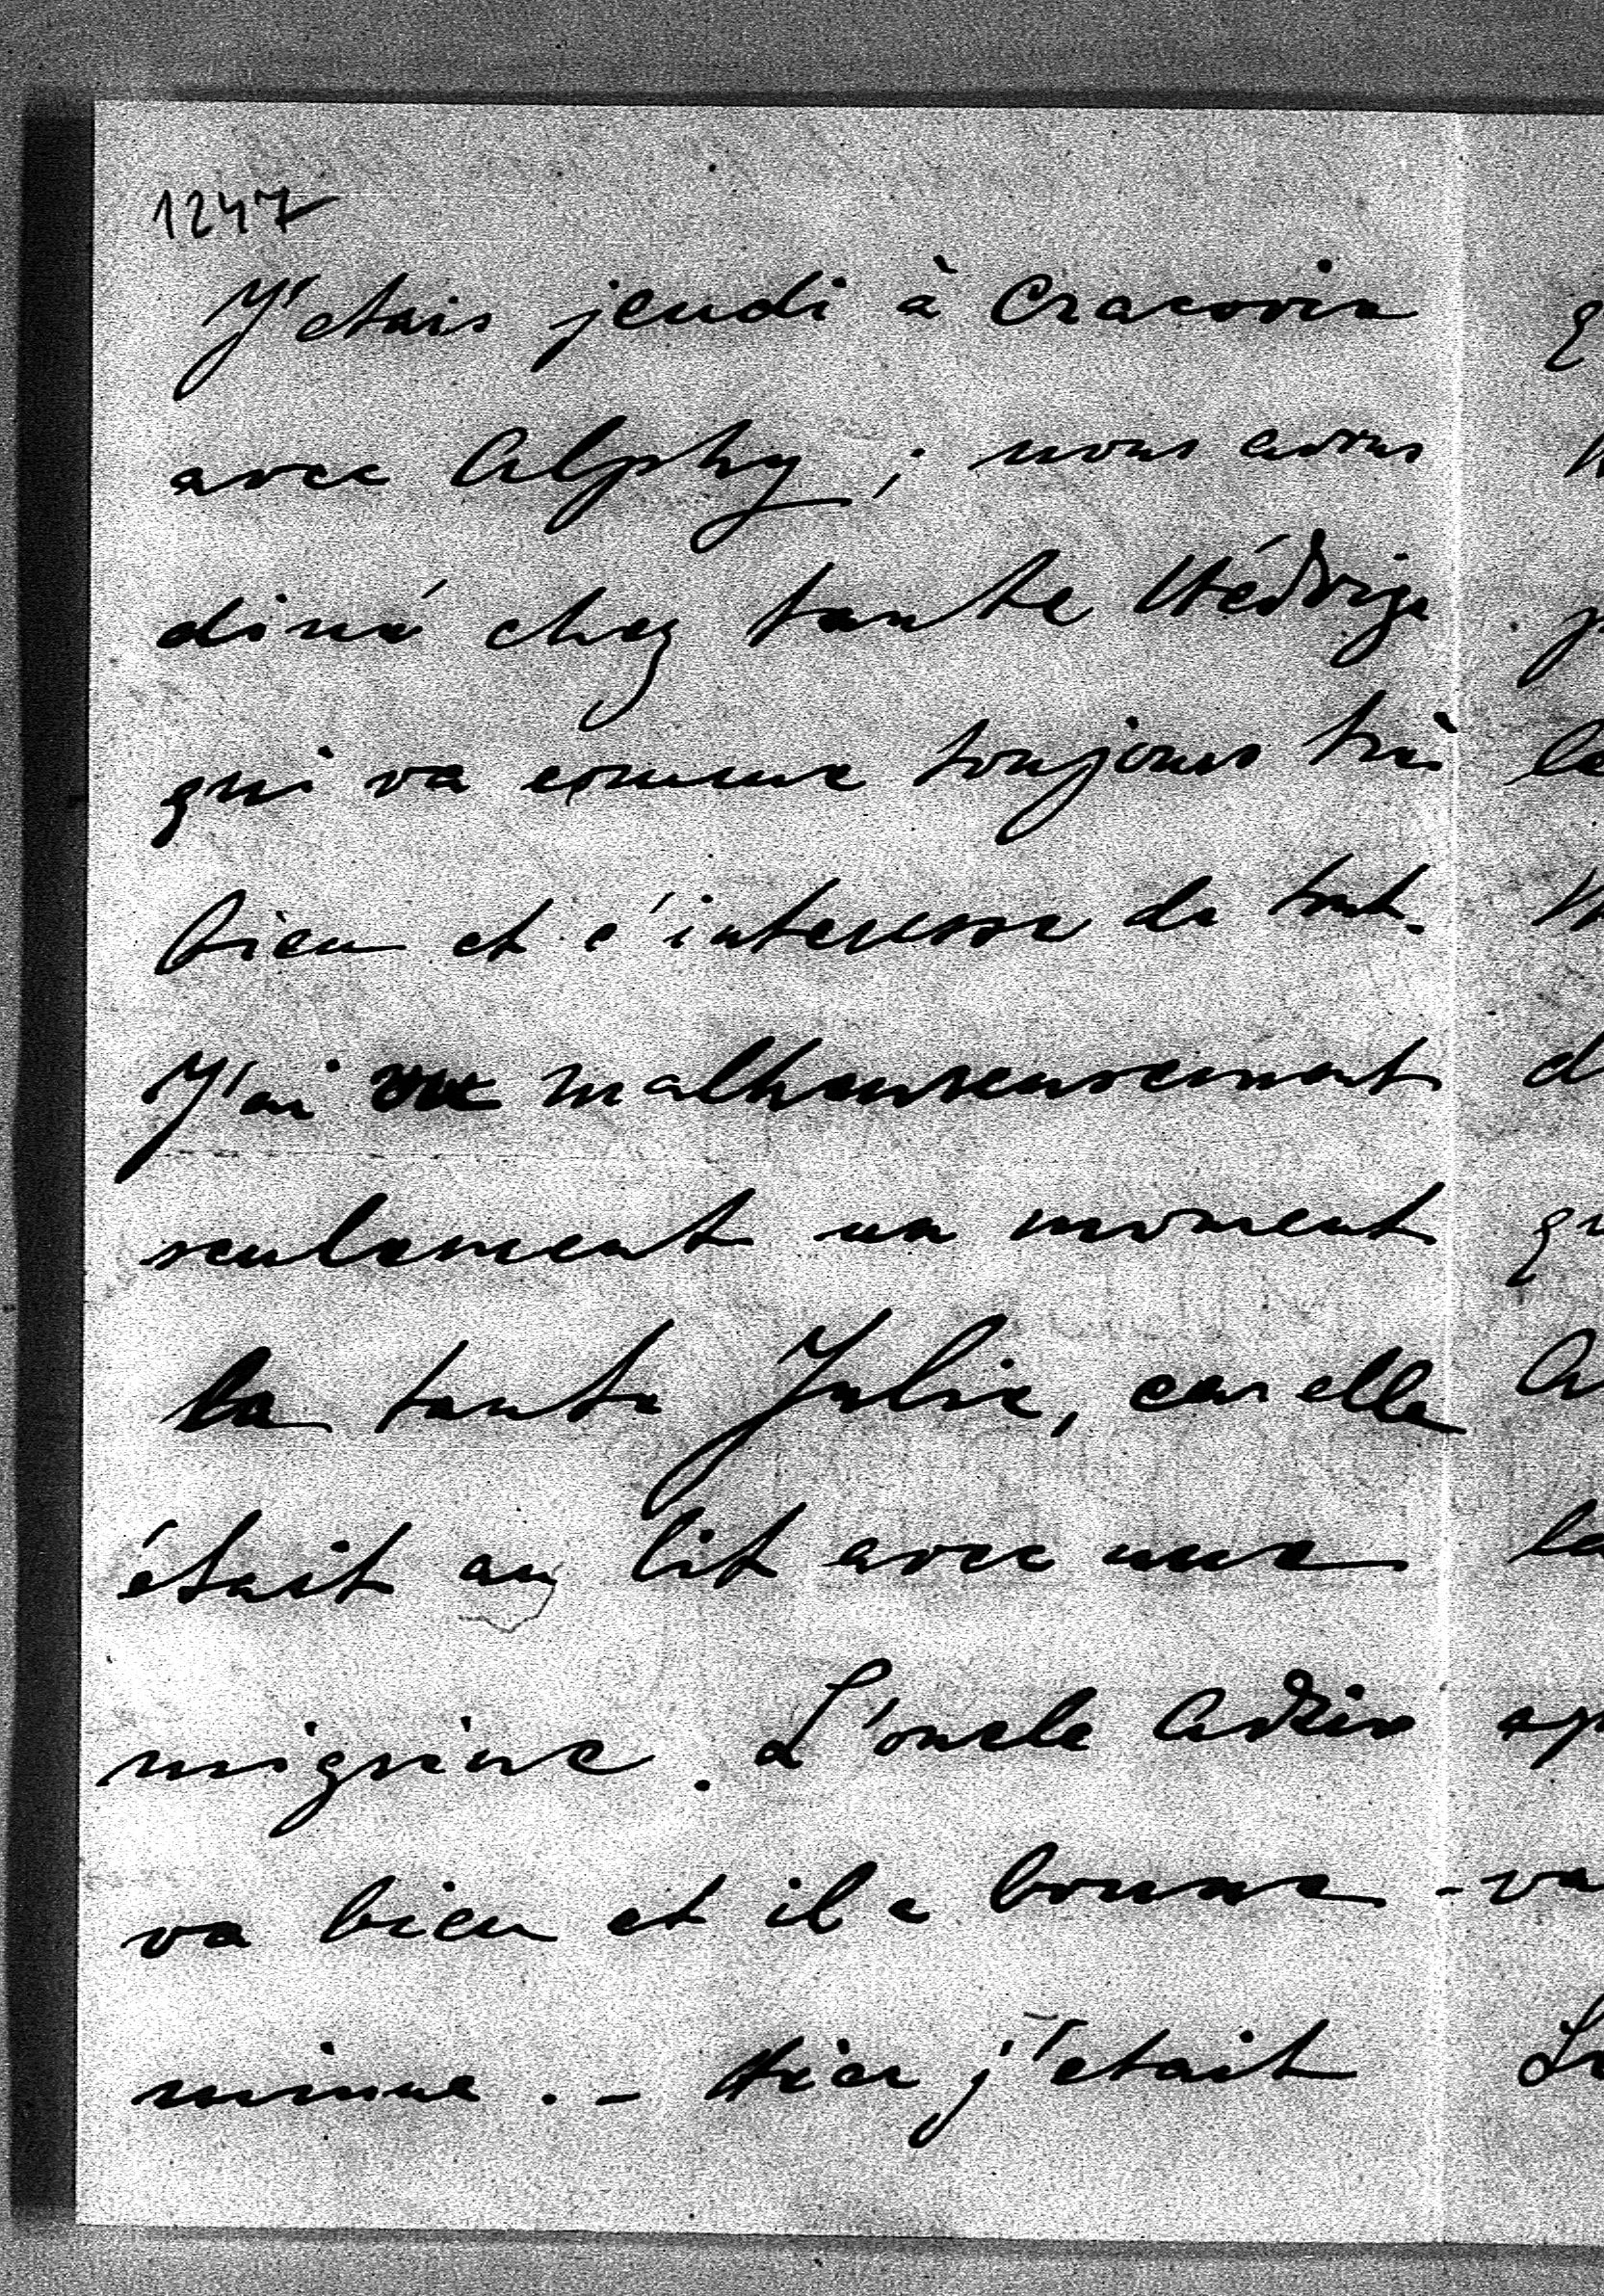 1247
J'etais jeudi à Cracovie
avec Alphy ; nous avons
diné chez tante Hédvige
qui va comme toujours très
bien et s'interesse de tout.
J'ai vue malheureusement
seulement un moment
la tante Julie, car elle
était au lit avec une
migrène. L'oncle
va bien et il a bonne
minne. - Hier j'etait